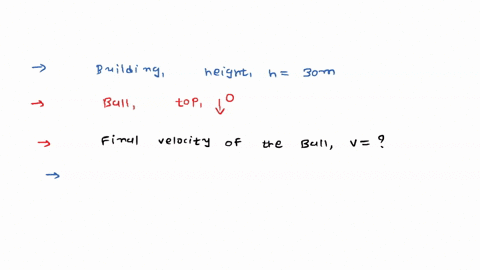 → Building, height, h = 30m
→ Ball, top, ↓0
→ Final velocity of the Ball, v = ?
→